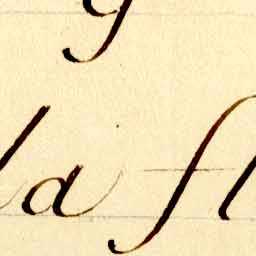 g
la fl